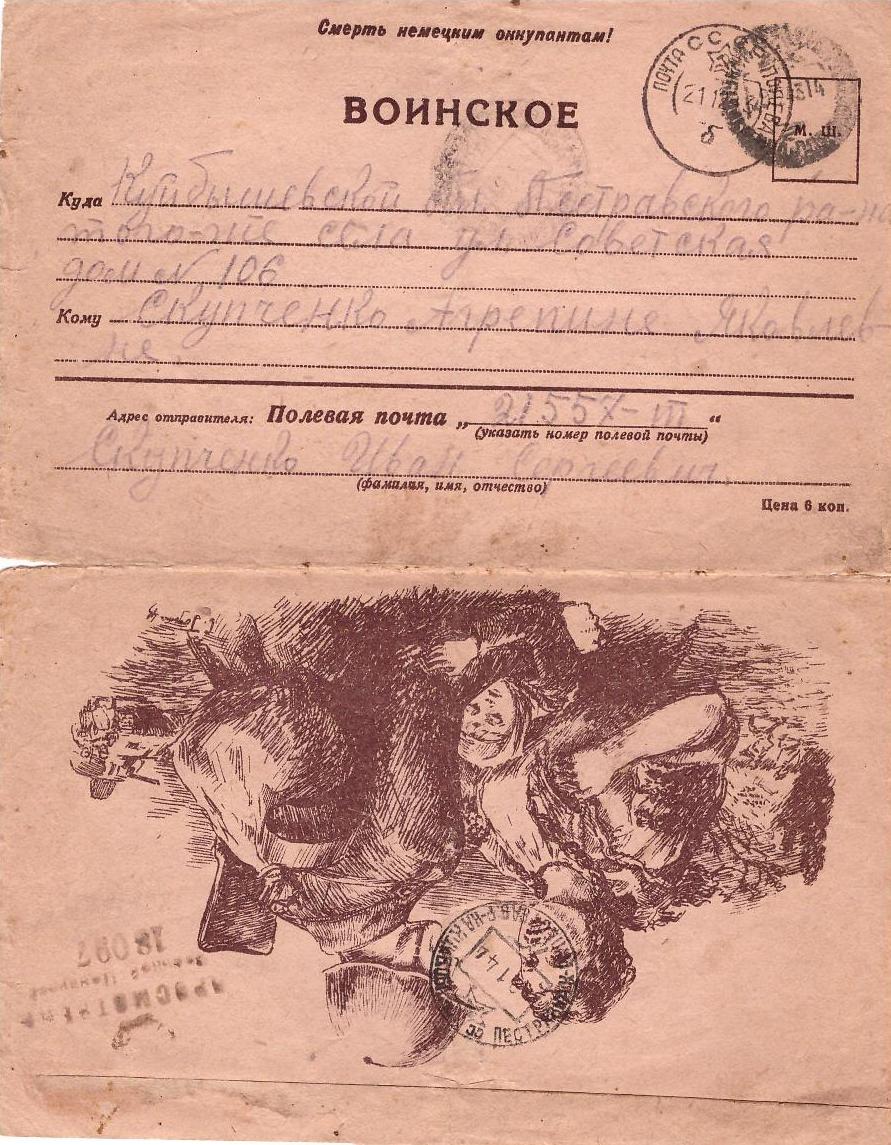 Смерть немецким оккупантам!
ВОИНСКОЕ
ПОЧТА СС
М. Ш.
Куда Куйбышевской обл Пестравского ра-на
того-же села ул Советская
дом № 106
Кому Скупченко Агрепине Яковлев
не.
Адрес отправителя: Полевая почта „21557-III“
(указать номер полевой почты)
Скупченко Иван Сергеевич
(фамилия, имя, отчество)
Цена 6 коп.
ПРОСМОТРЕНО
Военной Цензурой
18097